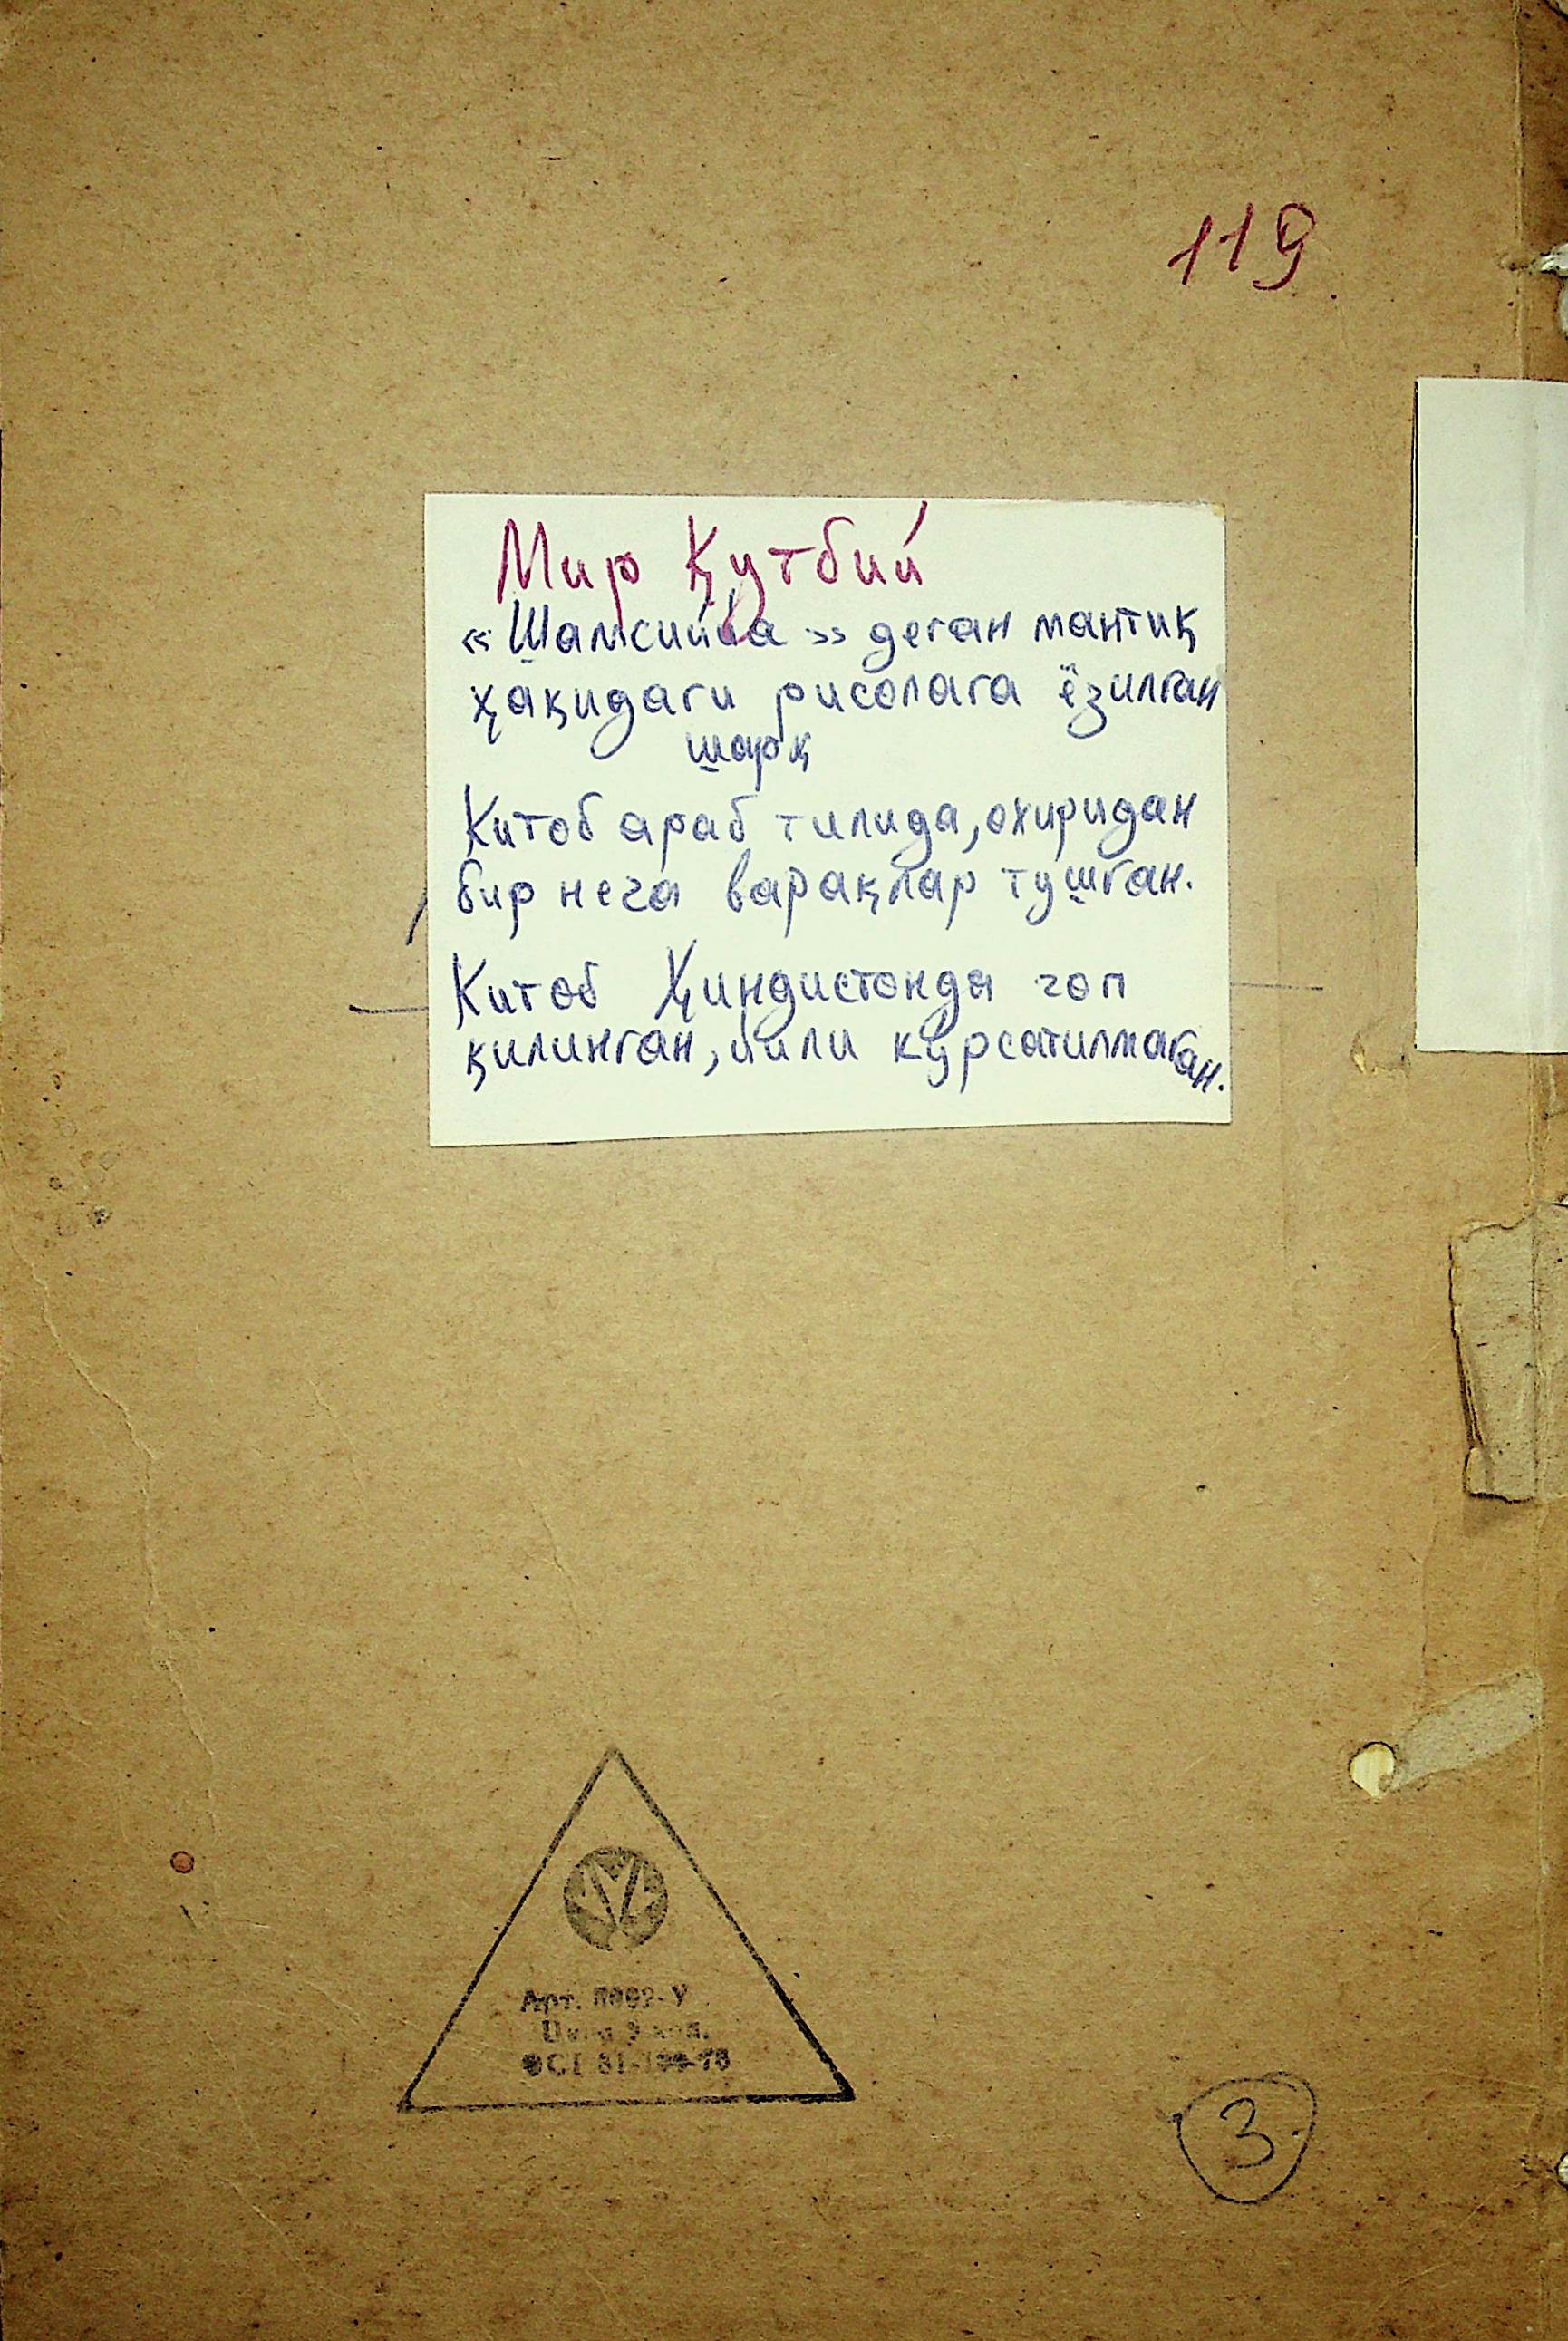 119
Мир Қутбий
«Шамсиййа» деган мантиқ
ҳақидаги рисолага ёзилган
шарҳ
Китоб араб тилида, охиридан
бир неча варақлар тушган.
Китоб Ҳиндистонда чоп
қилинган, йили кўрсатилмаган.
Арт.
3